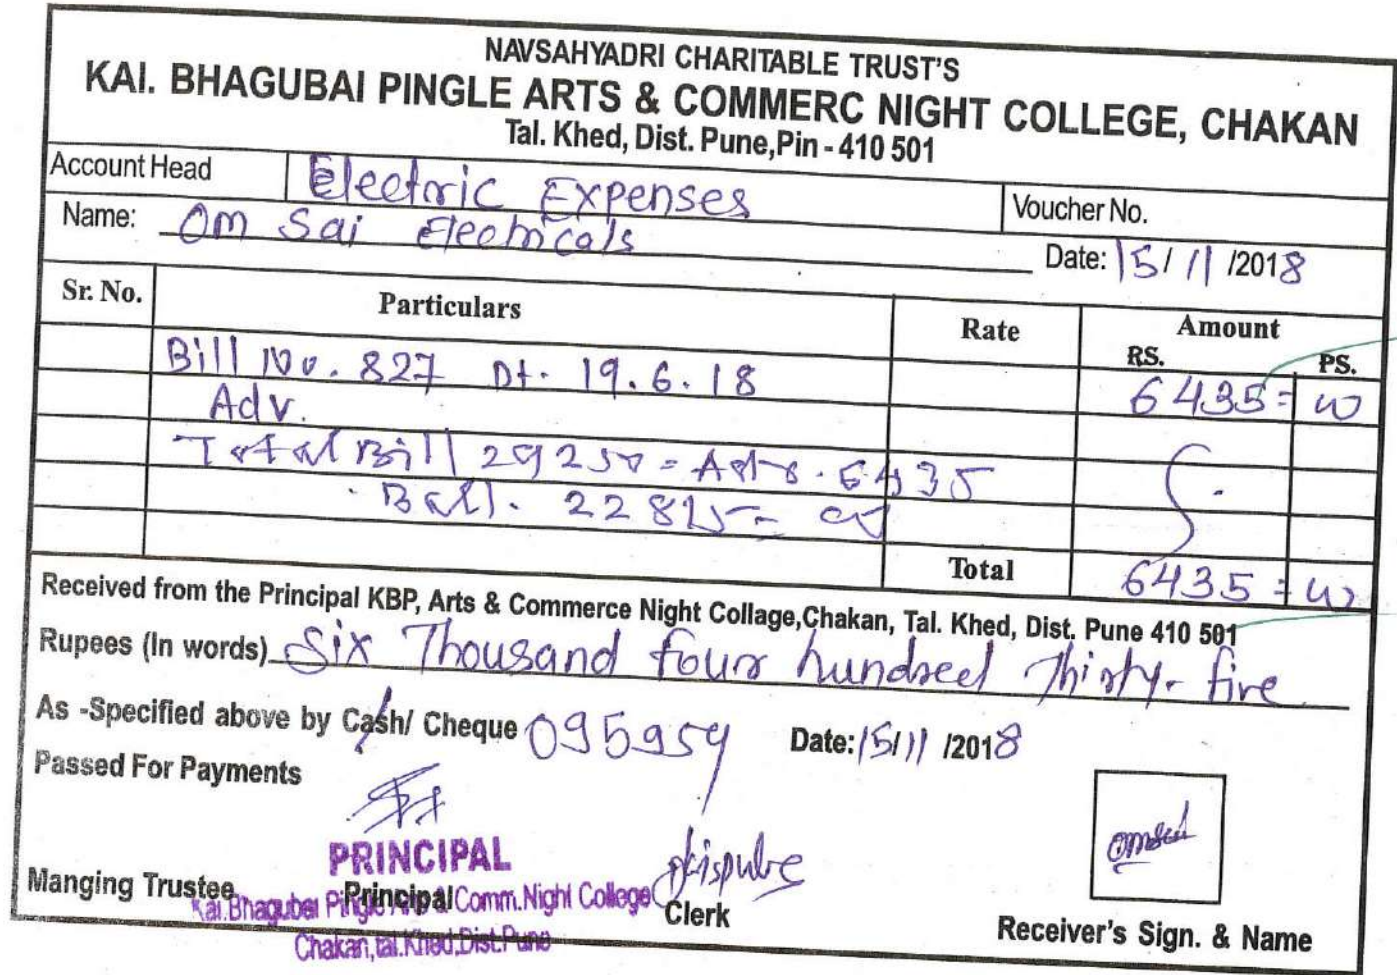 NAVSAHYADRI CHARITABLE TRUST'S
KAI. BHAGUBAI PINGLE ARTS & COMMERC NIGHT COLLEGE, CHAKAN
Tal. Khed, Dist. Pune,Pin - 410 501
Account Head Electric Expenses Voucher No.
Name: Om Sai Electricals
Date: 15/ 11 /2018
Sr. No. Particulars Rate Amount
RS. PS.
Bill No. 827 Dt. 19.6.18 6435=
Adv.
Total Bill 29250= Adv. 6435
Ball. 22815=
Total 6435=
Received from the Principal KBP, Arts & Commerce Night Collage,Chakan, Tal. Khed, Dist. Pune 410 501
Rupees (In words) Six Thousand four hundred Thirty-five
As -Specified above by Cash/ Cheque 095959 Date:15/11 /2018
Passed For Payments
PRINCIPAL
Manging Trustee Principal Clerk
Kai.Bhagubai Pingle Arts & Comm.Night College
Chakan,tal.Khed,Dist.Pune
omsai
Receiver's Sign. & Name